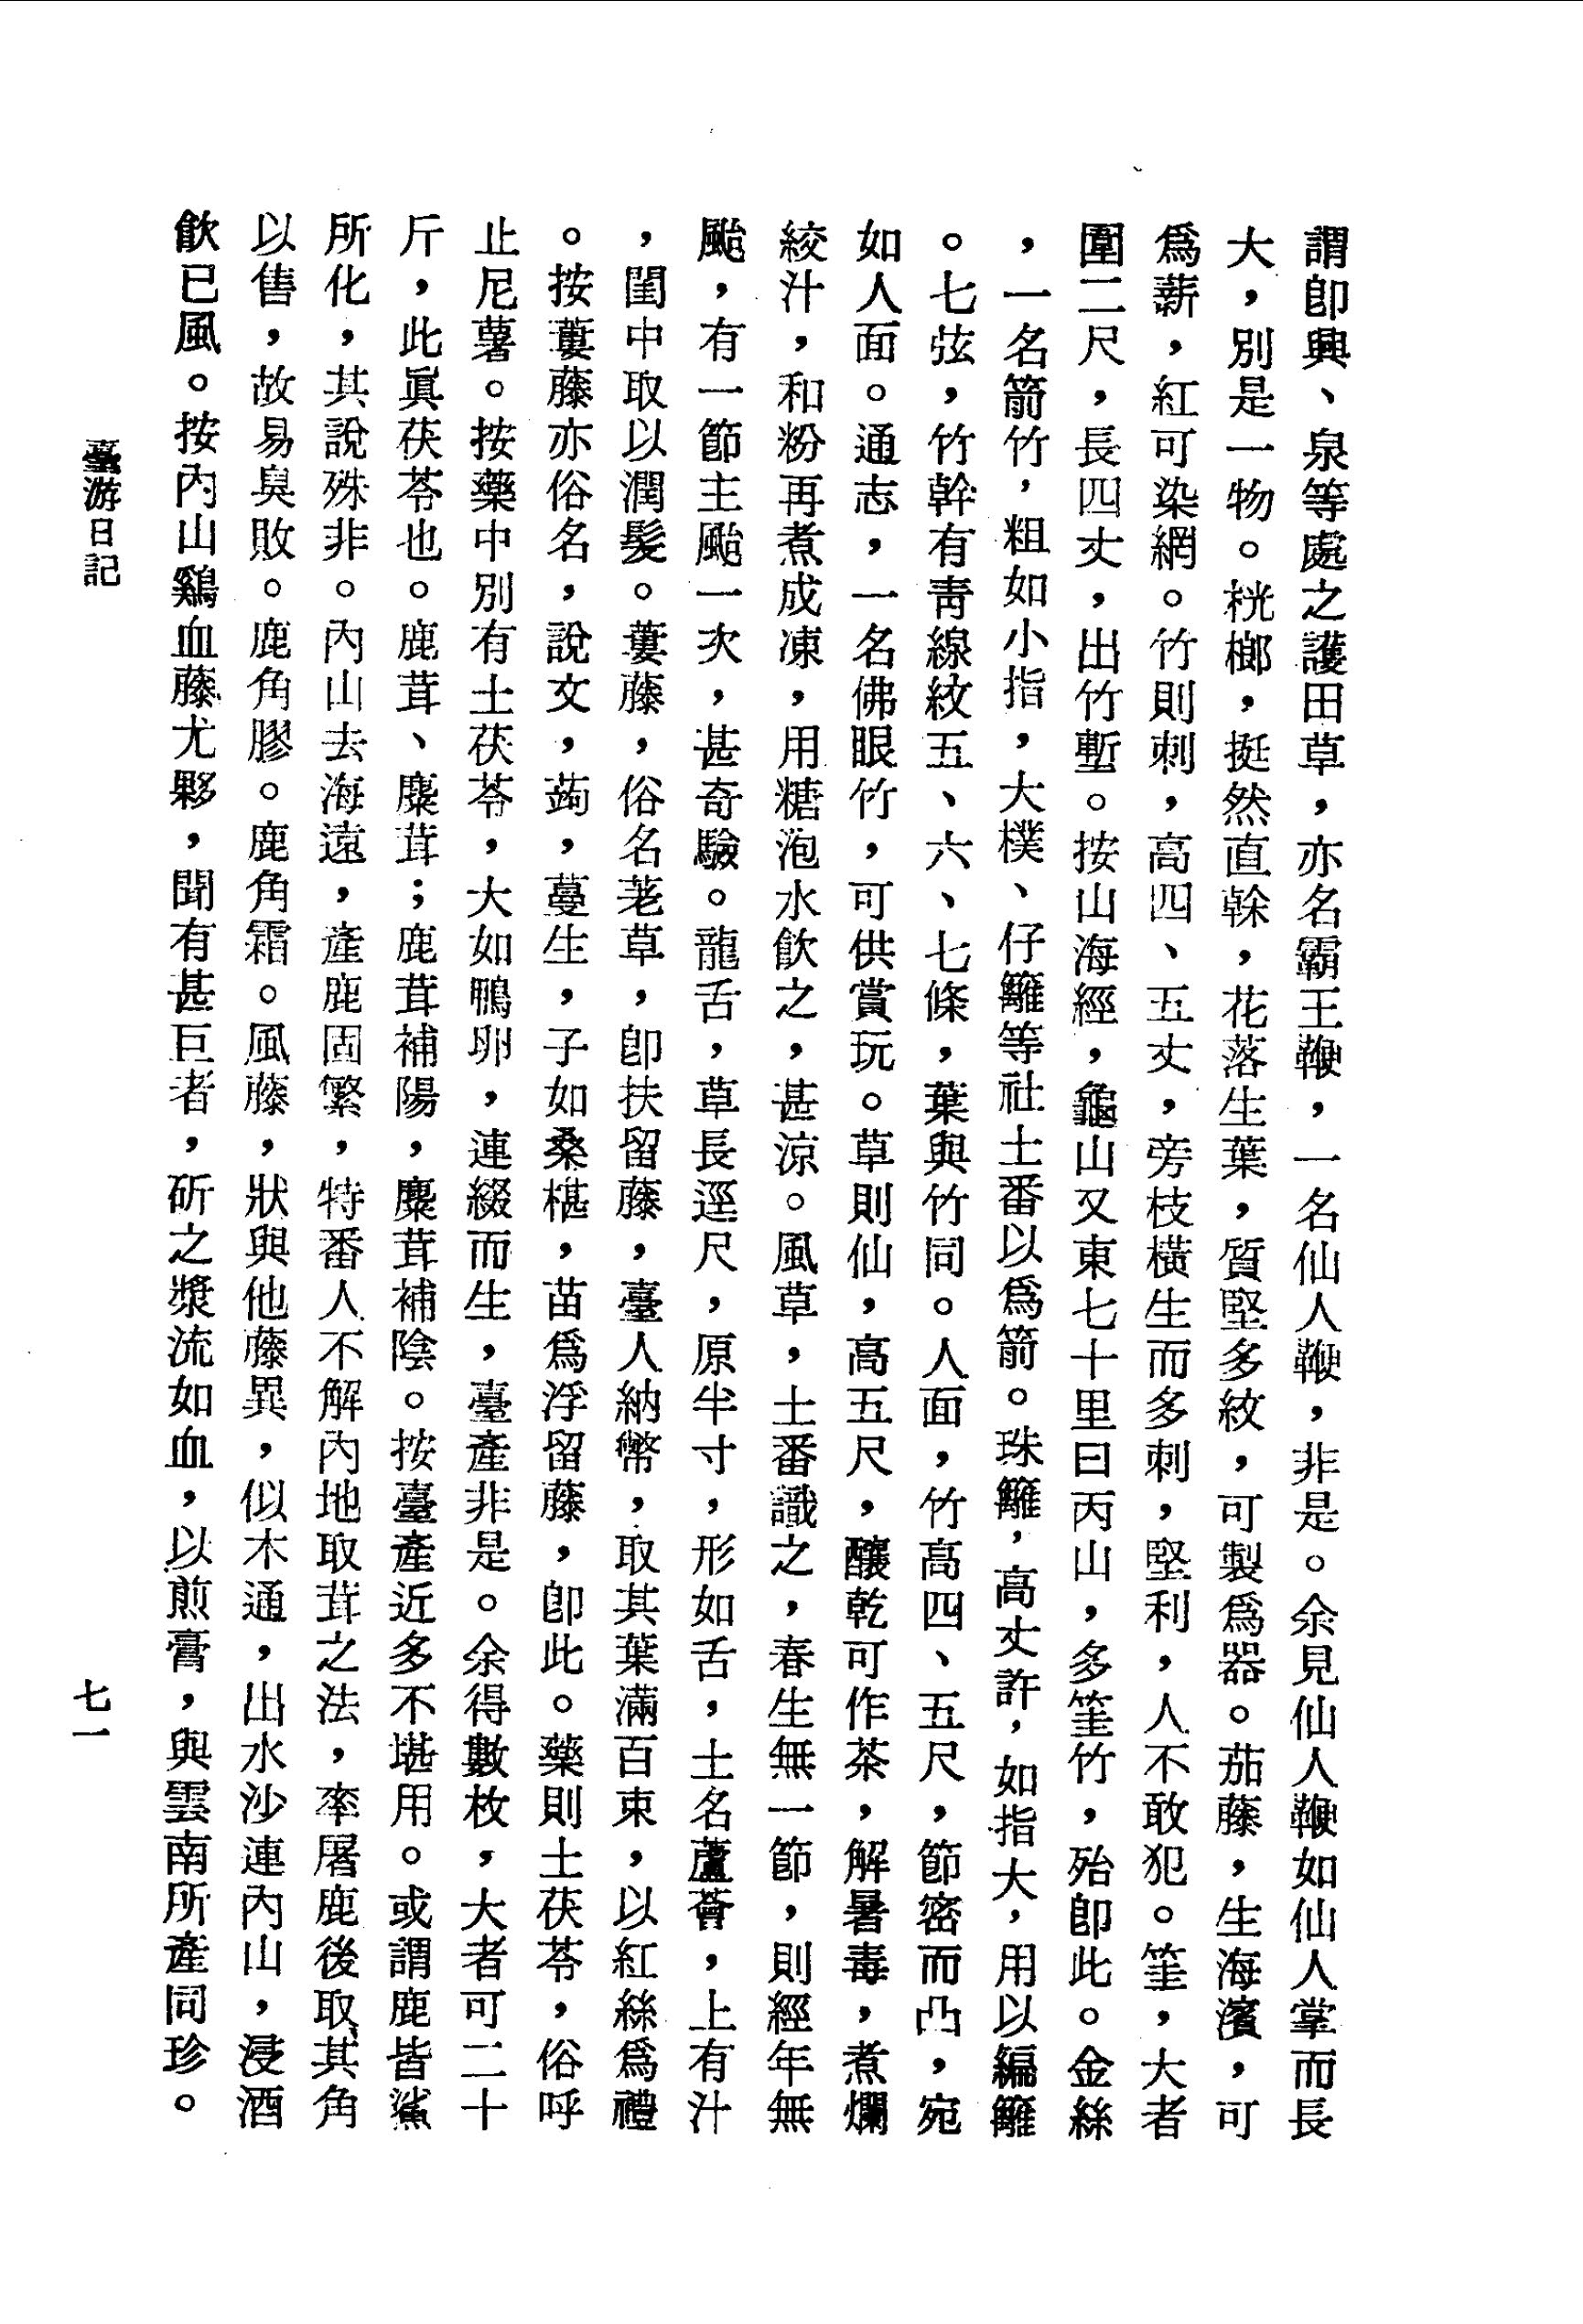 謂卽興、泉等處之護田草，亦名霸王鞭，一名仙人鞭，非是。余見仙人鞭如仙人掌而長
大，別是一物。桄榔，挺然直榦，花落生葉，質堅多紋，可製爲器。茄藤，生海濱，可
爲薪，紅可染網。竹則刺，高四、五丈，旁枝橫生而多刺，堅利，人不敢犯。䇯，大者
圍二尺，長四丈，出竹塹。按山海經，龜山又東七十里曰丙山，多䇯竹，殆卽此。金絲
，一名箭竹，粗如小指，大樸、仔籬等社土番以爲箭。珠籬，高丈許，如指大，用以編籬
。七弦，竹幹有靑線紋五、六、七條，葉與竹同。人面，竹高四、五尺，節密而凸，宛
如人面。通志，一名佛眼竹，可供賞玩。草則仙，高五尺，釀乾可作茶，解暑毒，煮爛
絞汁，和粉再煮成凍，用糖泡水飮之，甚涼。風草，土番識之，春生無一節，則經年無
颱，有一節主颱一次，甚奇驗。龍舌，草長逕尺，原半寸，形如舌，土名蘆薈，上有汁
，閨中取以潤髮。蔞藤，俗名荖草，卽扶留藤，臺人納幣，取其葉滿百束，以紅絲爲禮
。按蔞藤亦俗名，說文，蒟，蔓生，子如桑椹，苗爲浮留藤，卽此。藥則土茯苓，俗呼
止尼薯。按藥中別有土茯苓，大如鴨卵，連綴而生，臺產非是。余得數枚，大者可二十
斤，此眞茯苓也。鹿茸、麋茸；鹿茸補陽，麋茸補陰。按臺產近多不堪用。或謂鹿皆鯊
所化，其說殊非。內山去海遠，產鹿固繁，特番人不解內地取茸之法，率屠鹿後取其角
以售，故易臭敗。鹿角膠。鹿角霜。風藤，狀與他藤異，似木通，出水沙連內山，浸酒
飮已風。按內山鷄血藤尤夥，聞有甚巨者，斫之漿流如血，以煎膏，與雲南所產同珍。
臺游日記
七一